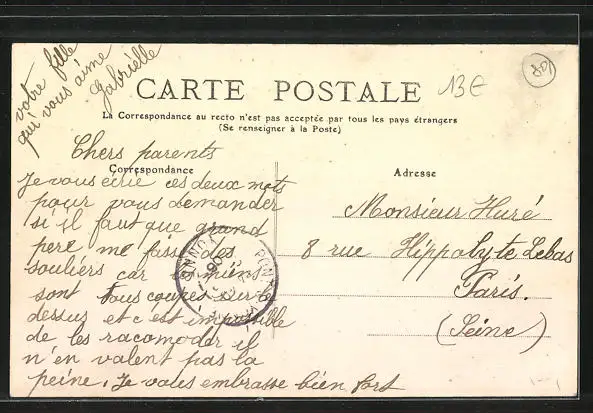 votre fille
qui vous aime
Gabrielle
CARTE POSTALE
13€
La Correspondance au recto n'est pas acceptée par tous les pays étrangers
(Se renseigner à la Poste)
Correspondance
Chers parents
Je vous écrie ces deux mots
pour vous demander
si il faut que grand
pere me fasse des
souliers car
sont tous coupés sur le
dessus et c'est impossible
de les racomoder il
n'en valent pas la
peine. Je vous embrasse bien fort
Adresse
Monsieur Huré
8 rue Hippolyte Lebas
Paris.
(Seine)